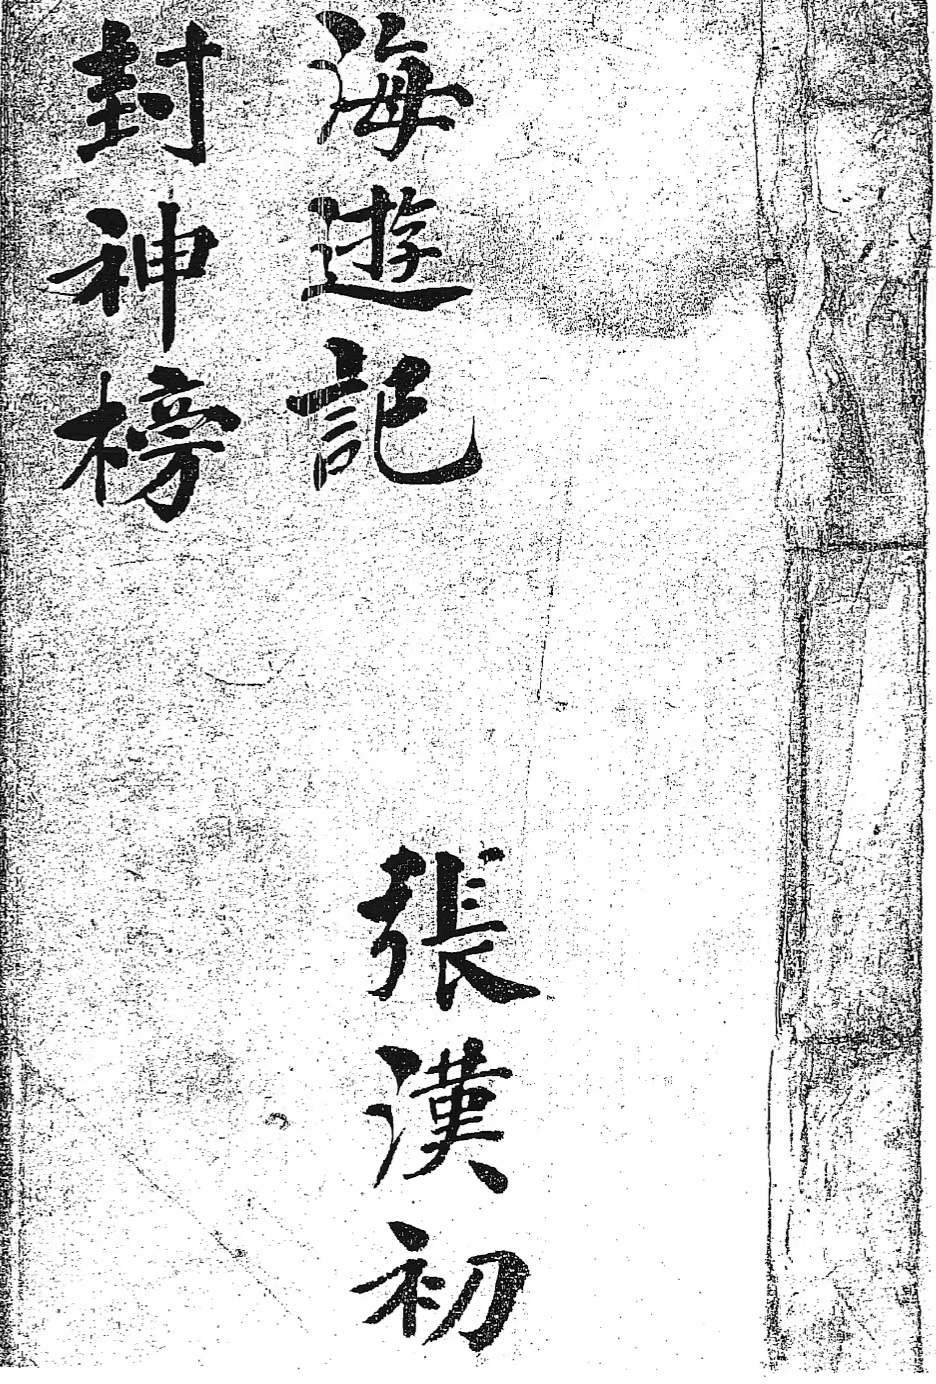 海遊記
張漢初
封神榜